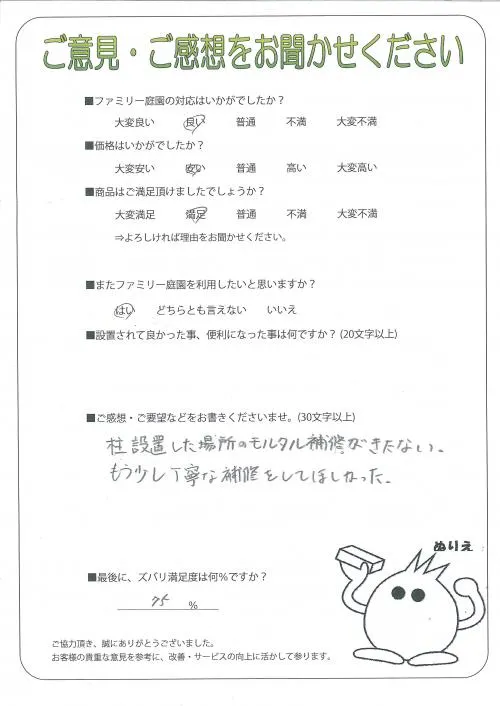 ご意見・ご感想をお聞かせください
■ファミリー庭園の対応はいかがでしたか？
大変良い 良い 普通 不満 大変不満
■価格はいかがでしたか？
大変安い 安い 普通 高い 大変高い
■商品はご満足頂けましたでしょうか？
大変満足 満足 普通 不満 大変不満
⇒よろしければ理由をお聞かせください。
■またファミリー庭園を利用したいと思いますか？
はい どちらとも言えない いいえ
■設置されて良かった事、便利になった事は何ですか？(20文字以上)
■ご感想・ご要望などをお書きくださいませ。(30文字以上)
柱設置した場所のモルタル補修がきたない。
もう少し丁寧な補修をしてほしかった。
ぬりえ
■最後に、ズバリ満足度は何％ですか？
75 ％
ご協力頂き、誠にありがとうございました。
お客様の貴重な意見を参考に、改善・サービスの向上に活かして参ります。